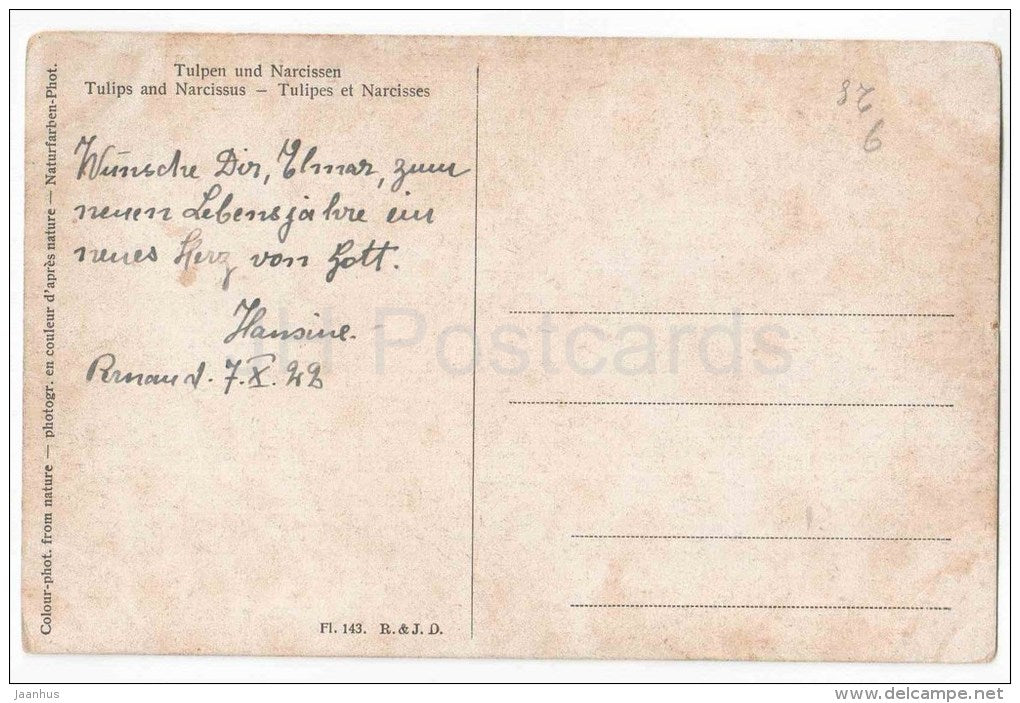 Tulpen und Narcissen
Tulips and Narcissus — Tulipes et Narcisses
Colour-phot. from nature — photogr. en couleur d'après nature — Naturfarben-Phot.
Wünsche Dir, Elmar, zum
neuen Lebensjahre ein
neues Herz von Gott.
Hansine.
7.X.22
Fl. 143. R. & J. D.
JH Postcards
jaanhus
www.delcampe.net